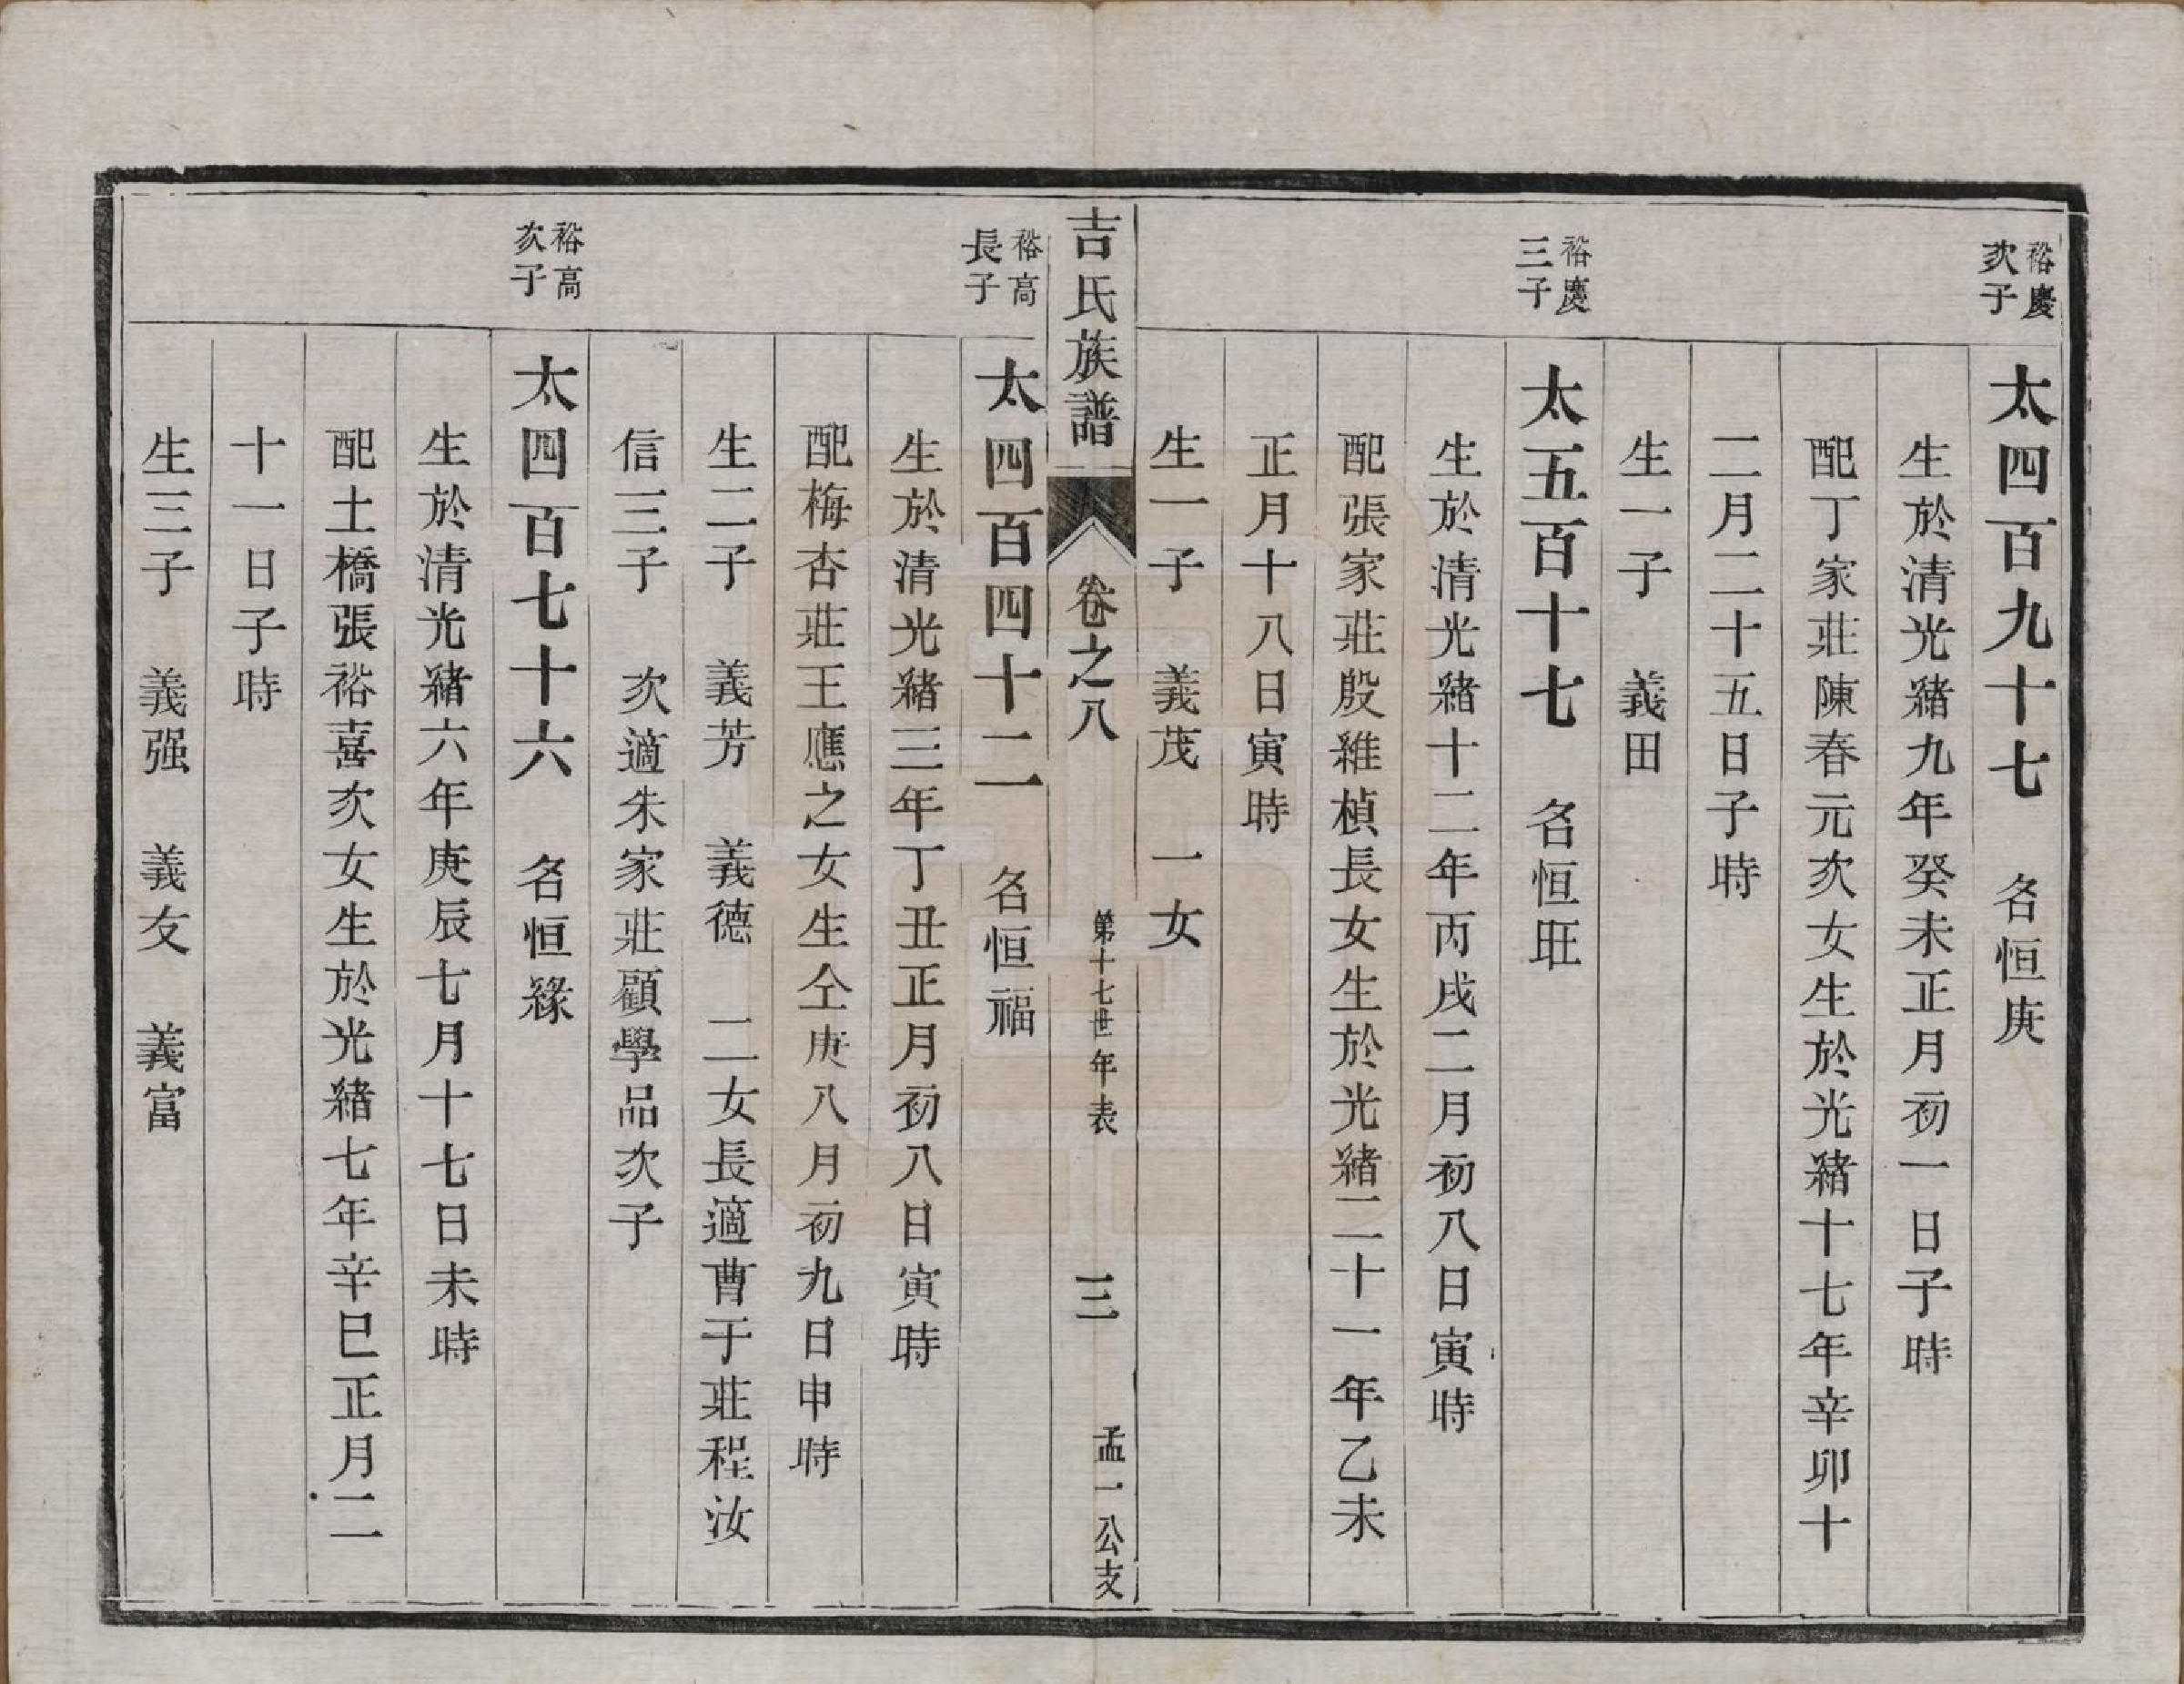 裕慶
次子
太四百九十七　名恒庚
生於清光緒九年癸未正月初一日子時
配丁家莊陳春元次女生於光緒十七年辛卯十
二月二十五日子時
生一子　義田
裕慶
三子
太五百十七　名恒旺
生於清光緒十二年丙戌二月初八日寅時
配張家莊殷維楨長女生於光緒二十一年乙未
正月十八日寅時
生一子　義茂　一女
吉氏族譜　卷之八　第十七世年表　三　孟一公支
裕高
長子
太四百四十二　名恒福
生於清光緒三年丁丑正月初八日寅時
配梅杏莊王應之女生仝庚八月初九日申時
生二子　義芳　義德　二女長適曹于莊程汝
信三子　次適朱家莊顧學品次子
裕高
次子
太四百七十六　名恒緣
生於清光緒六年庚辰七月十七日未時
配土橋張裕喜次女生於光緒七年辛巳正月二
十一日子時
生三子　義强　義友　義富